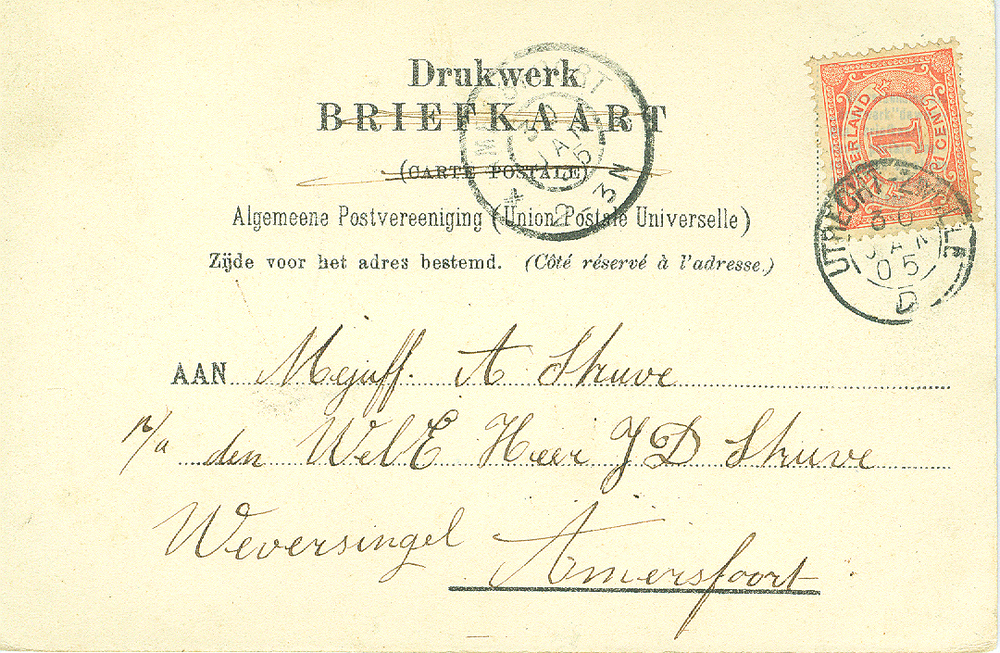 Drukwerk
BRIEFKAART
(CARTE POSTALE)
Algemeene Postvereeniging (Union Postale Universelle)
Zijde voor het adres bestemd. (Côté réservé à l'adresse.)
AAN Mejuff. A Struve
p/a den WelE Heer J D Struve
Weversingel Amersfoort
NEDERLAND 1 CENT
UTRECHT-ZWOLLE
30
JAN
05
D
AMERSFOORT
30
JAN
05
2-3N